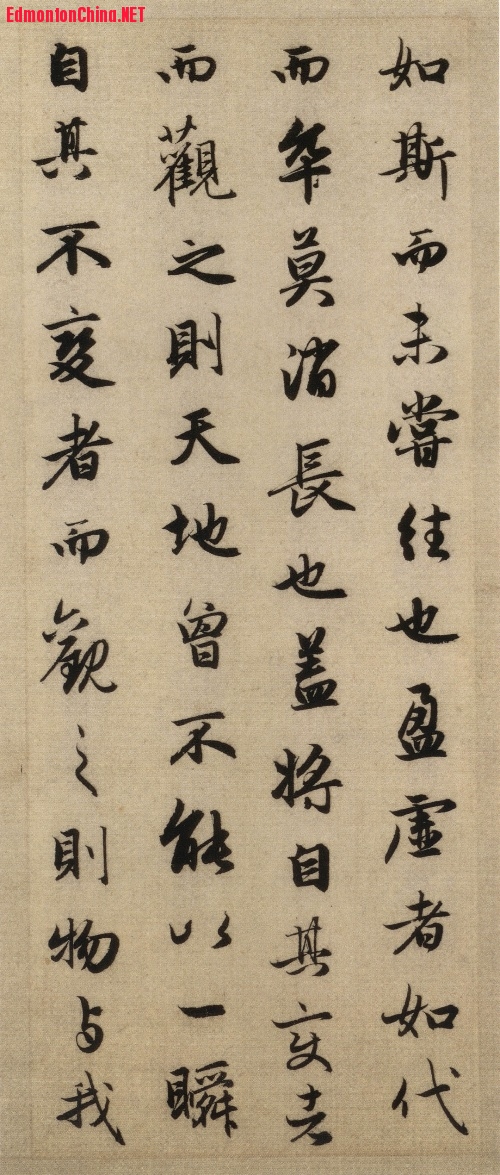 EdmontonChina.NET
如斯而未嘗往也盈虛者如代
而卒莫消長也蓋將自其变者
而觀之則天地曾不能以一瞬
自其不變者而觀之則物与我